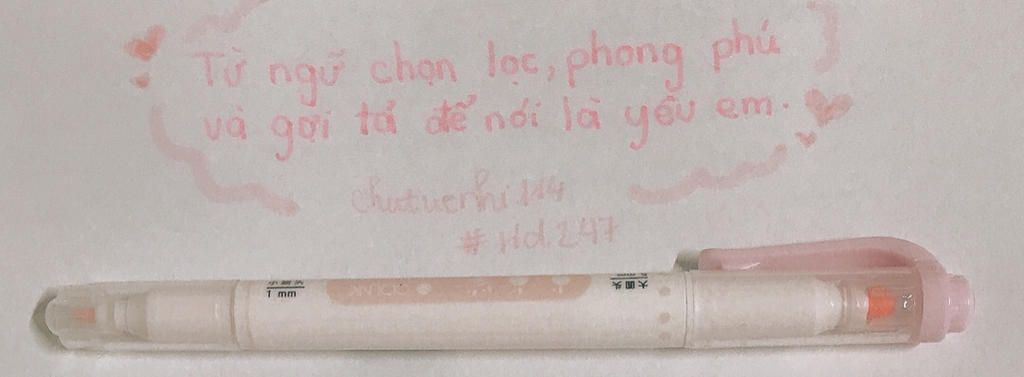 Từ ngữ chọn lọc, phong phú
và gợi tả để nói là yêu em.
#Hd.247
1 mm
大圆头